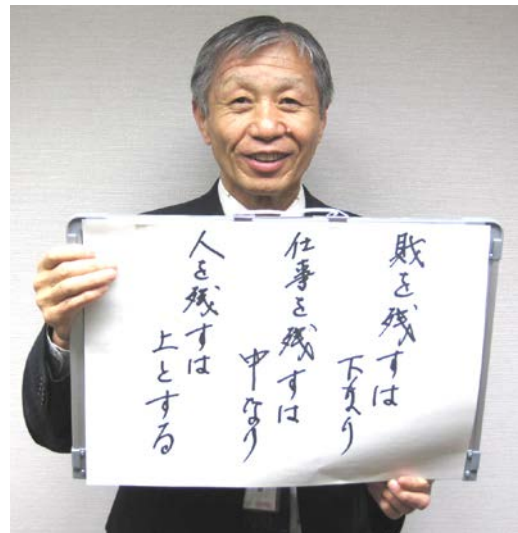 財を残すは
下なり
仕事を残すは
中なり
人を残すは
上とする